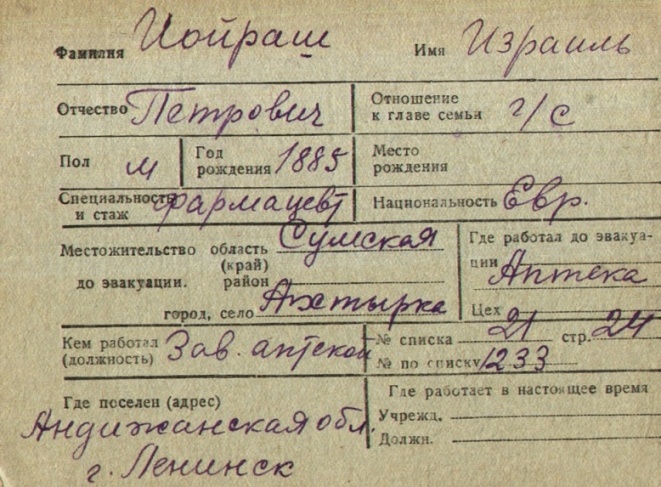 Фамилия Иойраш Имя Израиль
Отчество Петрович Отношение к главе семьи г/с
Пол м Год рождения 1885 Место рождения
Специальность и стаж фармацевт Национальность Евр.
Местожительство область Сумская Где работал до эвакуа-
(край) ции Аптека
до эвакуации. район
город, село Ахтырка Цех
Кем работал (должность) Зав. аптекой № списка 21 стр. 24
№ по списку 1233
Где поселен (адрес) Где работает в настоящее время
Андижанская обл. Учрежд.
г. Ленинск Должн.